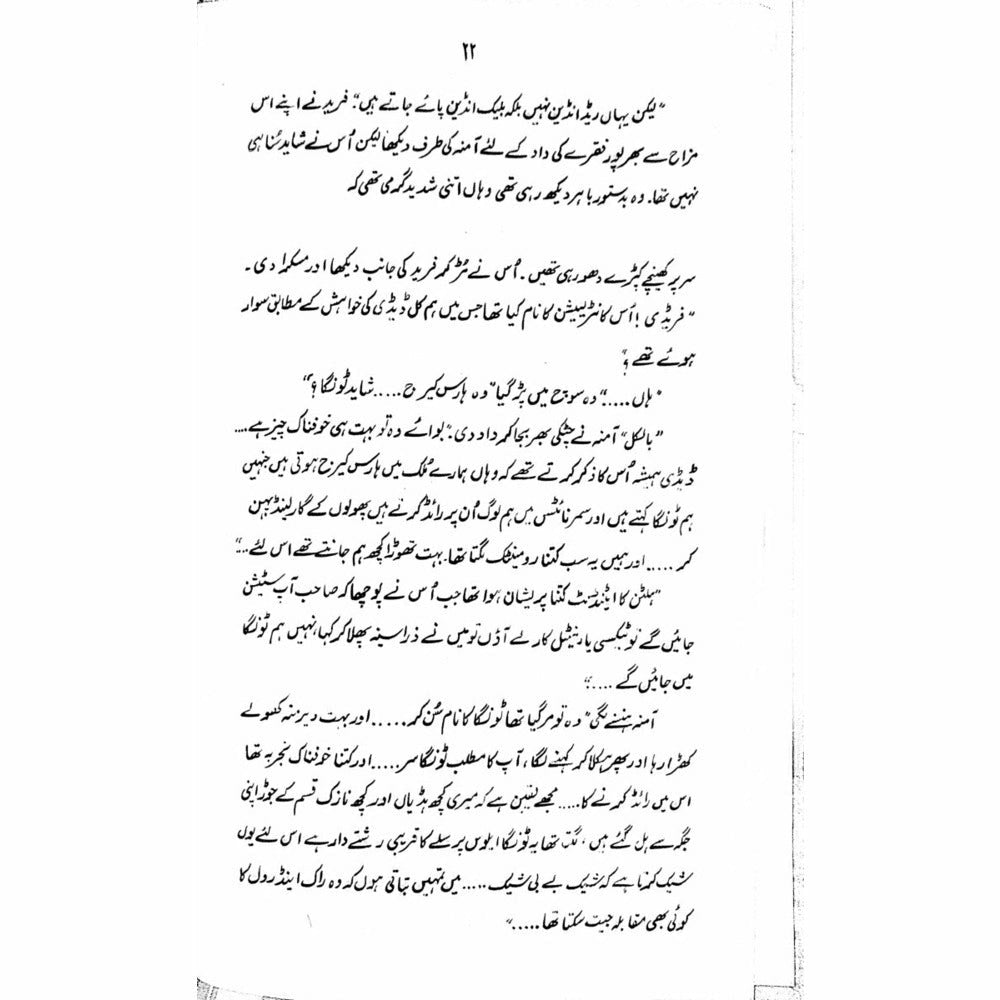 ۲۲
"لیکن یہاں ریڈ انڈین نہیں بلکہ بلیک انڈین پائے جاتے ہیں"۔ فرید نے اپنے اس
مزاح سے بھرپور فقرے کی داد کے لئے آمنہ کی طرف دیکھا لیکن اُس نے شاید سُنا ہی
نہیں تھا۔ وہ بدستور باہر دیکھ رہی تھی وہاں اتنی شدید گرمی تھی کہ
سر پر کھینچے کپڑے دھو رہی تھیں۔ اُس نے مڑ کر فرید کی جانب دیکھا اور مسکرا دی۔
"فریڈی! اُس کانٹریپشن کا نام کیا تھا جس میں ہم کل ڈیڈی کی خواہش کے مطابق سوار
ہوئے تھے؟"
"ہاں....." وہ سوچ میں پڑ گیا "وہ ہارس کیرج..... شاید ٹونگا؟"
"بالکل" آمنہ نے چٹکی بھر بجا کر داد دی۔ "بوائے وہ تو بہت ہی خوفناک چیز ہے....
ڈیڈی ہمیشہ اُس کا ذکر کرتے تھے کہ وہاں ہمارے مُلک میں ہارس کیرج ہوتی ہیں جنہیں
ہم ٹونگا کہتے ہیں اور سمر نائٹس میں ہم لوگ اُن پر رائڈ کرتے ہیں پھولوں کے گارلینڈ پہن
کر..... اور ہمیں یہ سب کتنا رومینٹک لگتا تھا۔ بہت تھوڑا کچھ ہم جانتے تھے اس لئے..."
"ہلٹن کا اٹینڈنٹ کتنا پریشان ہوا تھا جب اُس نے پوچھا کہ صاحب آپ سٹیشن
جائیں گے تو ٹیکسی یا رینٹل کار لے آؤں تو میں نے ذرا سینہ پھلا کر کہا، نہیں ہم ٹونگا
میں جائیں گے....."
آمنہ ہنسنے لگی "وہ تو مر گیا تھا ٹونگا کا نام سُن کر..... اور بہت دیر منہ کھولے
کھڑا رہا اور پھر ہکلا کر کہنے لگا، آپ کا مطلب ٹونگا سر..... اور کتنا خوفناک تجربہ تھا
اس میں رائڈ کرنے کا..... مجھے یقین ہے کہ میری کچھ ہڈیاں اور کچھ نازک قسم کے جوڑ اپنی
جگہ سے ہل گئے ہیں، لگتا تھا یہ ٹونگا ایلوس پرسلے کا قریبی رشتے دار ہے اس لئے یوں
شیک کرتا ہے کہ شیک بے بی شیک..... میں تمہیں بتاتی ہوں کہ وہ راک اینڈ رول کا
کوئی بھی مقابلہ جیت سکتا تھا....."